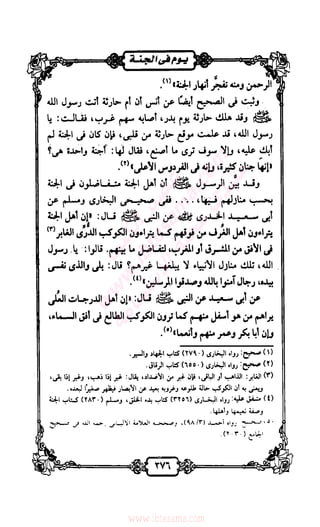 يوم فى الجنة
الرحمن ومنه تفجَّر أنهار الجنة»(١).
وثبت فى الصحيح أيضًا عن أنس أن أم حارثة أتت رسول الله
ﷺ وقد هلك حارثة يوم بدر، أصابه سهم غرب، فقالت: يا
رسول الله، قد علمت موقع حارثة من قلبى، فإن كان فى الجنة لم
أبك عليه، وإلا سوف ترى ما أصنع، فقال لها: أجنة واحدة هى؟
«إنها جنان كثيرة، وإنه فى الفردوس الأعلى»(٢).
وقد بيَّن الرسول ﷺ أن أهل الجنة متفاضلون فى الجنة
بحسب منازلهم فيها، .... ففى صحيحى البخارى ومسلم عن
أبى سعيد الخدرى عن النبى ﷺ قال: «إن أهل الجنة
يتراءون أهل الغرف من فوقهم كما يتراءون الكوكب الدُّرى الغابر(٣)
فى الأفق من المشرق أو المغرب، لتفاضل ما بينهم. قالوا: يا رسول
الله، تلك منازل الأنبياء لا يبلغها غيرهم؟ قال: بلى والذى نفسى
بيده، رجال آمنوا بالله وصدقوا المرسلين»(٤).
عن أبى سعيد عن النبى ﷺ قال: «إن أهل الدرجات العلى
يراهم من هو أسفل منهم كما ترون الكوكب الطالع فى أفق السماء،
وإن أبا بكر وعمر منهم وأنعما»(٥).
(١) صحيح: رواه البخارى (٢٧٩٠) كتاب الجهاد والسير.
(٢) صحيح: رواه البخارى (٦٥٥٠) كتاب الرقاق.
(٣) الغابر: الذاهب أو الباقى، فإن غبر من الأضداد، يقال: غبر إذا ذهب، وغبر إذا بقى،
ويعنى به أن الكوكب حالة طلوعه وغروبه بعيد عن الأبصار فيظهر صغيرًا لبعده.
(٤) متفق عليه: رواه البخارى (٣٢٥٦) كتاب بدء الخلق، ومسلم (٢٨٣٠) كتاب الجنة
وصفة نعيمها وأهلها.
(٥) صحيح: رواه أحمد (٩٨/٣)، وصححه العلامة الألبانى رحمه الله فى صحيح
الجامع (٢٠٣٠).
٢٧٦